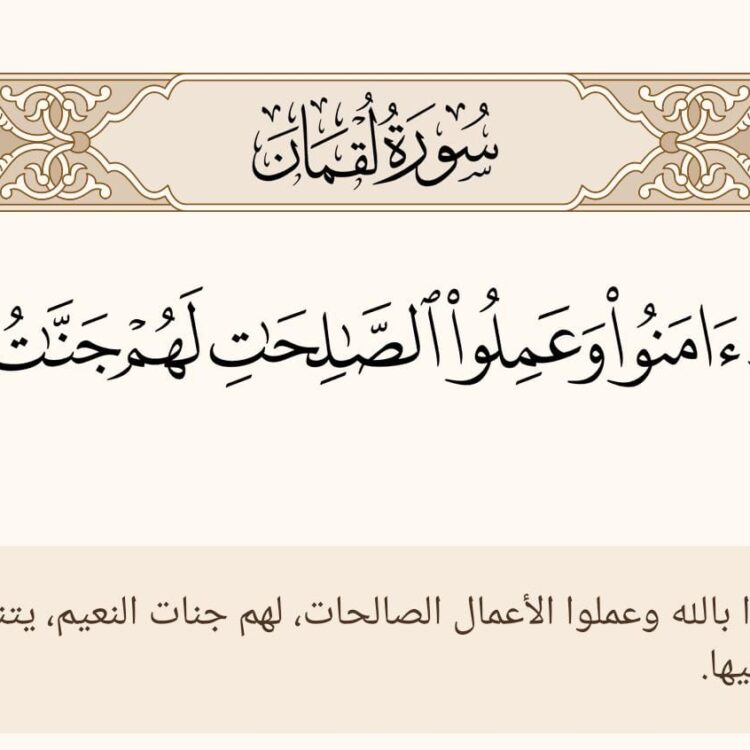 سُورَةُ لُقْمَان
ءَامَنُوا۟ وَعَمِلُوا۟ ٱلصَّـٰلِحَـٰتِ لَهُمْ جَنَّـٰتُ
بالله وعملوا الأعمال الصالحات، لهم جنات النعيم،